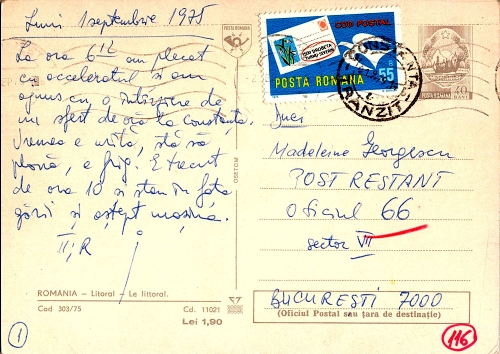 Luni 1 septembrie 1975
La ora 6 12 am plecat
cu acceleratul și am
ajuns cu o întârziere de
un sfert de oră la Constanța.
Vremea e urîtă, stă să
plouă, e frig. E trecut
de ora 10 și stau în fața
gării și aștept mașina.
ROMÂNIA – Litoral – Le littoral.
Cod 303/75
Cd. 11021
Lei 1,90
1
OSETOM
POȘTA ROMÂNĂ
COD POȘTAL
POSTA ROMANA
55
CONSTANTA
TRANZIT
POSTA ROMANA
40
Madeleine Georgescu
POST RESTANT
Oficiul 66
sector VII
BUCUREȘTI 7000
(Oficiul Poștal sau țara de destinație)
116